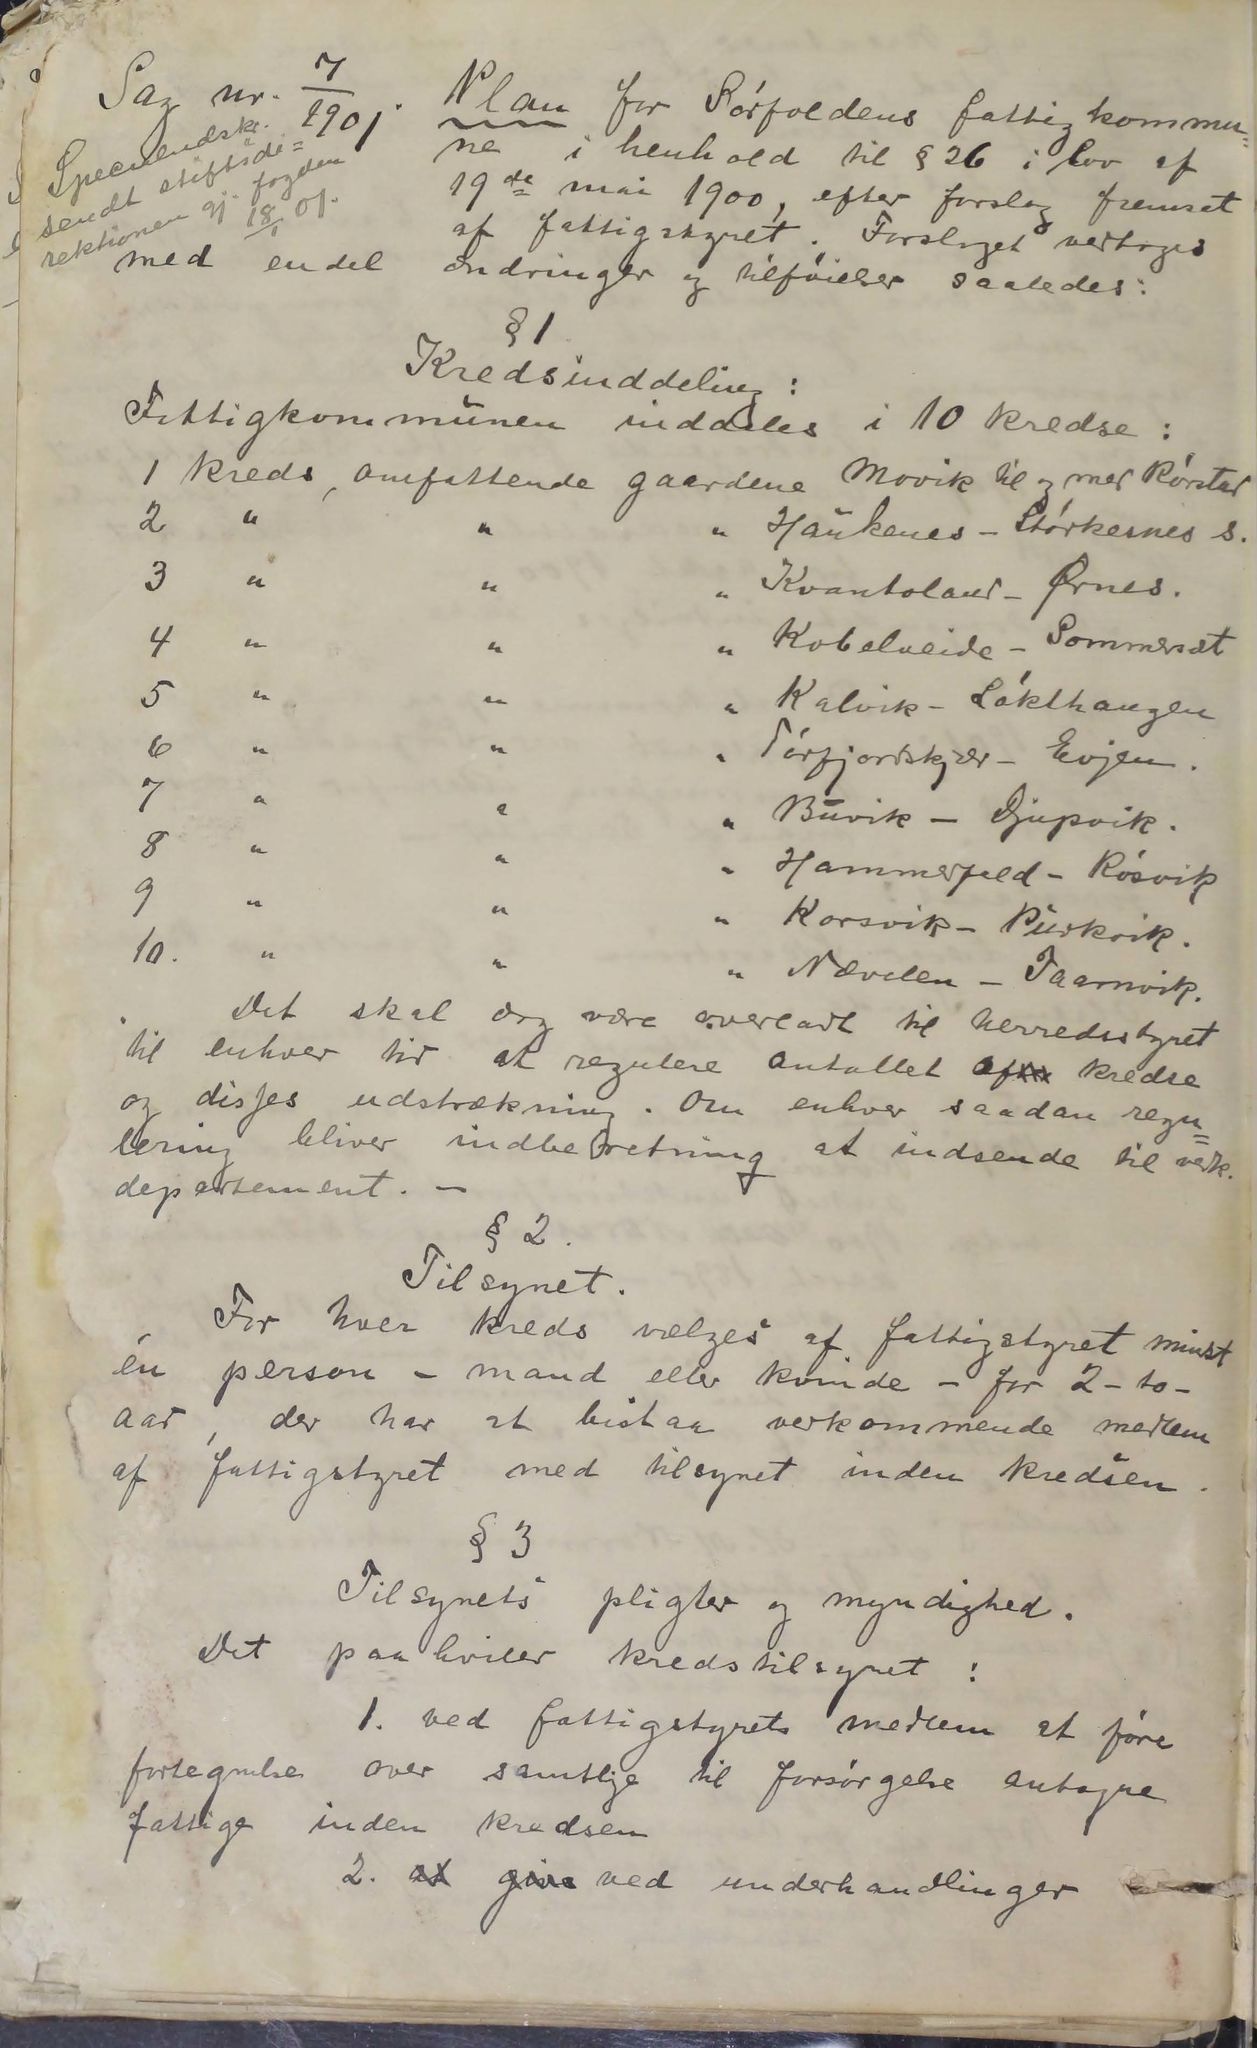 Sag nr. 7/1901. Plan for Sørfoldens fattigkommu=
ne i henhold til § 26 i lov af
19de mai 1900, efter forslag fremsat
af fattigstyret. Forslaget vedtoges
med endel ændringer og tilføielser saaledes:
sendt stiftsdi=
rektionen gj. fogden
18/1 01.
§ 1
Kredsinddeling:
Fattigkommunen inddeles i 10 kredse:
1 kreds, omfattende gaardene Movik til og med Rørstad
2 " " " Haukenes - Størkesnes s.
3 " " " Kvantoland - Ørnes.
4 " " " Kobelveide - Sommerset
5 " " " Kalvik - Løkthaugen
6 " " " Tørfjordskjær - Evjen.
7 " " " Buvik - Djupvik.
8 " " " Hammerfeld - Røsvik
9 " " " Korsvik - Purkvik.
10. " " " Nævelen - Taarnvik.
Det skal dog være overladt til herredsstyret
til enhver tid at regulere antallet af kredse
og disses udstrækning. Om enhver saadan regu=
lering bliver indberetning at indsende til vedk.
departement. -
§ 2.
Tilsynet.
For hver kreds vælges af fattigstyret minst
én person - mand eller kvinde - for 2 - to -
aar, der har at bistaa vedkommende medlem
af fattigstyret med tilsynet inden kredsen.
§ 3
Tilsynets pligter og myndighed.
Det paahviler kredstilsynet:
1. ved fattigstyrets medlem at føre
fortegnelse over samtlige til forsørgelse antagne
fattige inden kredsen
2. at give ved underhandlinger